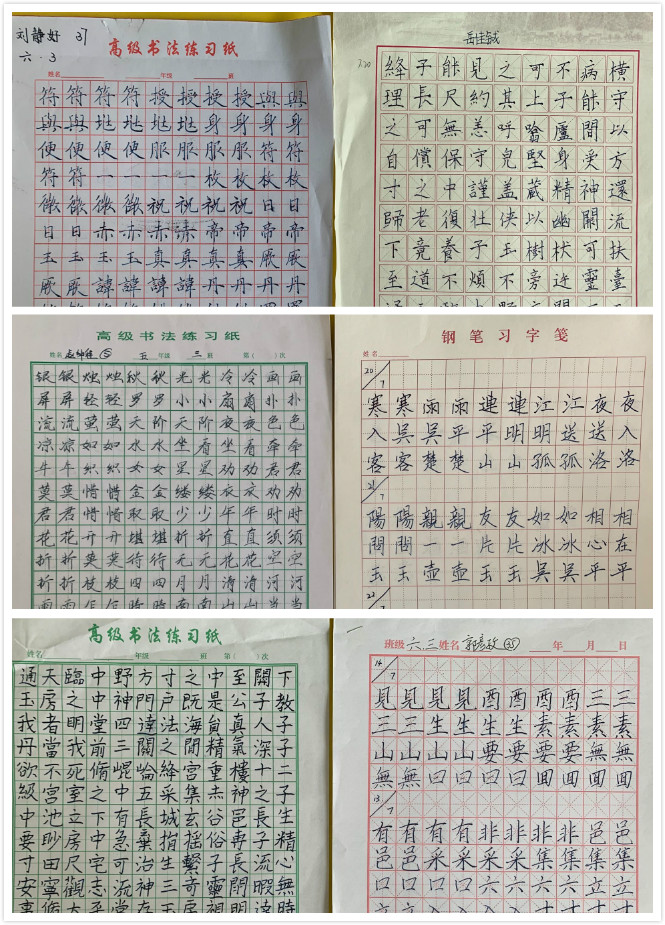 刘静好 37
六·3
高级书法练习纸
姓名 年级 班
符符符符授授授授與與
與與地地地地身身身身
便便便便服服服服符符
符符一一一一枚枚枚枚
微微微微祝祝祝祝日日
日日赤赤赤赤帝帝帝帝
玉玉玉玉真真真真厥厥
厥厥諱諱諱諱丹丹丹丹
岳佳铖
7.20
絳子能見之可不病橫
理長尺約其上子能守
之可無恙呼噏廬間以
自償保守兒堅身受方
寸之中謹盖蔵精神還
歸老復壯侠以幽闕流
下竟養子玉樹杖可扶
至道不煩不旁迕靈臺
高级书法练习纸
姓名 ⑤ 五年级 三班 第( )次
银银烛烛秋秋光光冷冷画画
屏屏轻轻罗罗小小扇扇扑扑
流流萤萤天阶天阶夜夜色色
凉凉如如水水坐看坐看牵牵
牛牛织织女女星星劝劝君君
莫莫惜惜金金缕缕衣衣劝劝
君君惜惜取取少少年年时时
花花开开堪堪折折直直须须
折折莫莫待待无无花花空空
折折枝枝田田月月清清河河
钢笔习字笺
姓名
20/7
寒寒雨雨連連江江夜夜
入吳吳平平明明送送入
客客楚楚山山孤孤洛洛
21/7
陽陽親親友友如如相相
問問一一片片冰冰心在
玉玉壺壺玉玉吳吳平平
22/7
高级书法练习纸
姓名 年级 班 第( )次
通天臨中野方寸之中至關下
玉房之中神門戶既是公子教
我者明堂四達法海員真人子
丹當我前三關之間精氣深子
欲不死脩崐崘絳宮重樓十二
級宮室之中五采集赤神之子
中池立下有長城玄谷邑長生
要眇房中急棄捐摇俗專子精
寸田尺宅可治生繫子長流心
安寧觀志流神三奇靈閉暇無
班级 六.三 姓名 年 月 日
14/7
見見見見酉酉酉酉三三
三三生生生生素素素素
山山山山要要要要無無
無無曰曰曰曰回回回回
13/7
有有有有非非非非邑邑
邑邑采采采采集集集集
口口口口六六六六立立